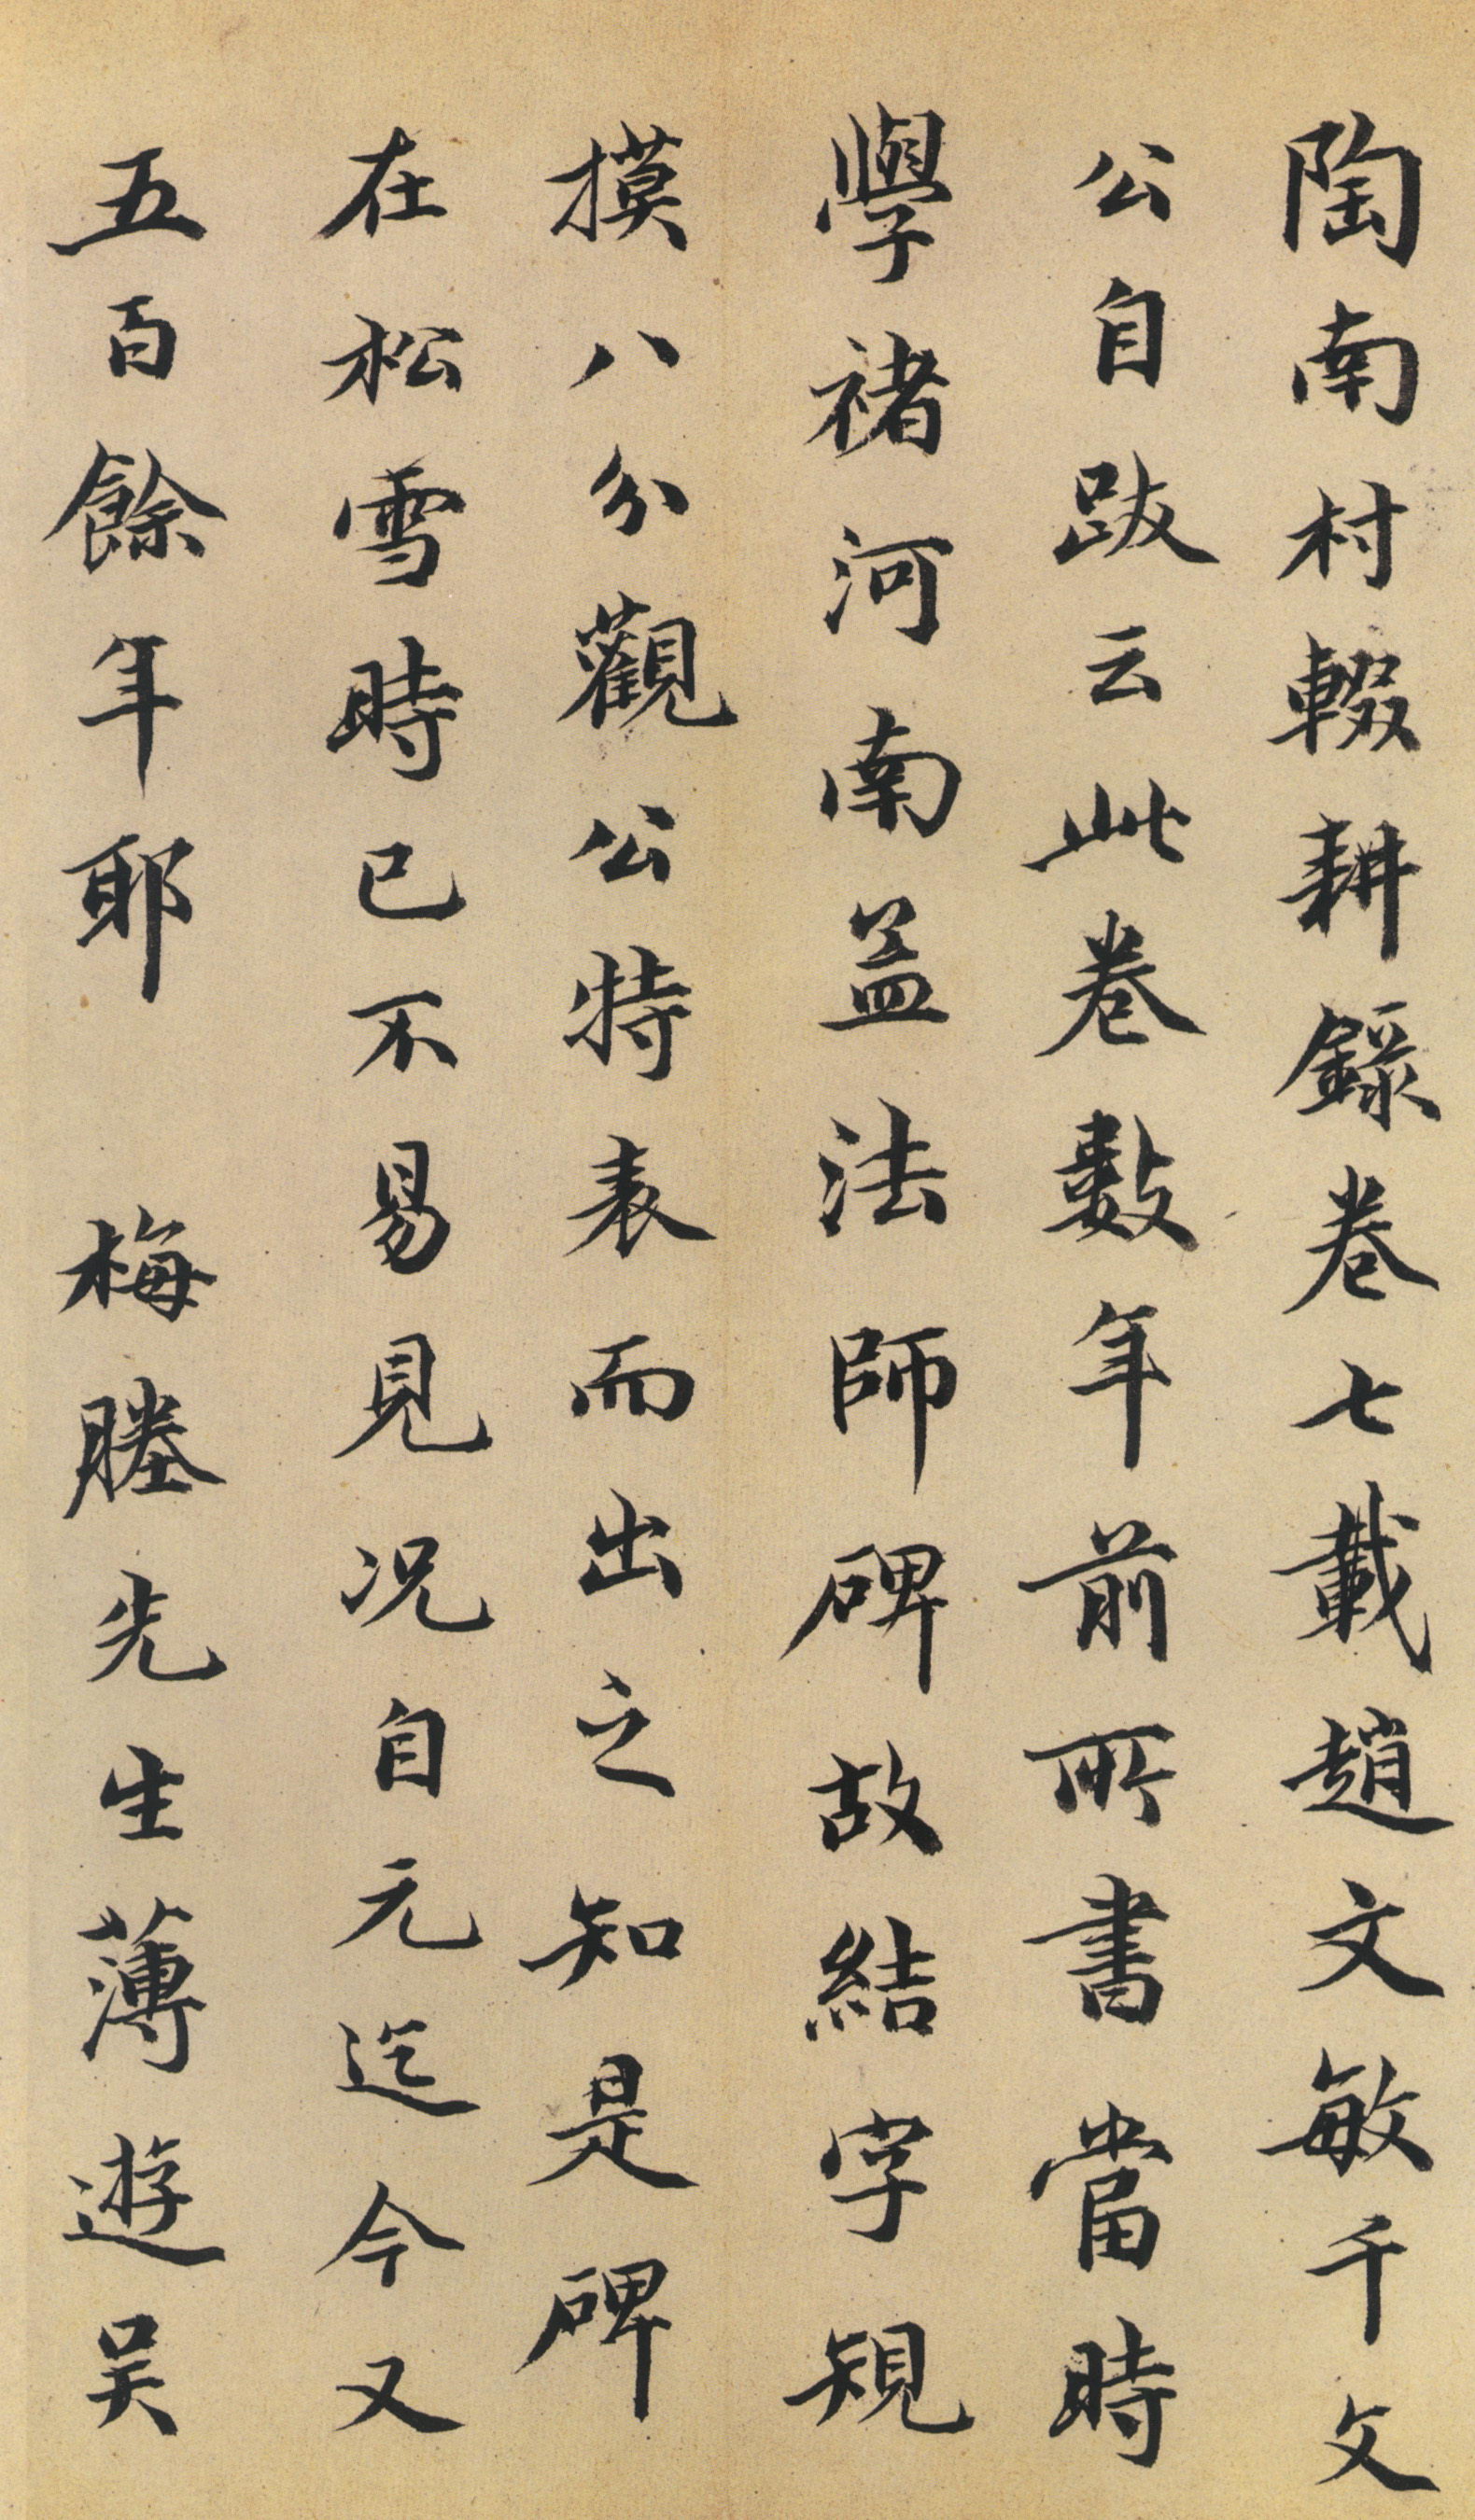 陶南村輟耕錄卷七載趙文敏千文
公自跋云此卷數年前所書當時
學褚河南孟法師碑故結字規
摸八分觀公特表而出之知是碑
在松雪時已不易見況自元迄今又
五百餘年耶　梅塍先生薄遊吴